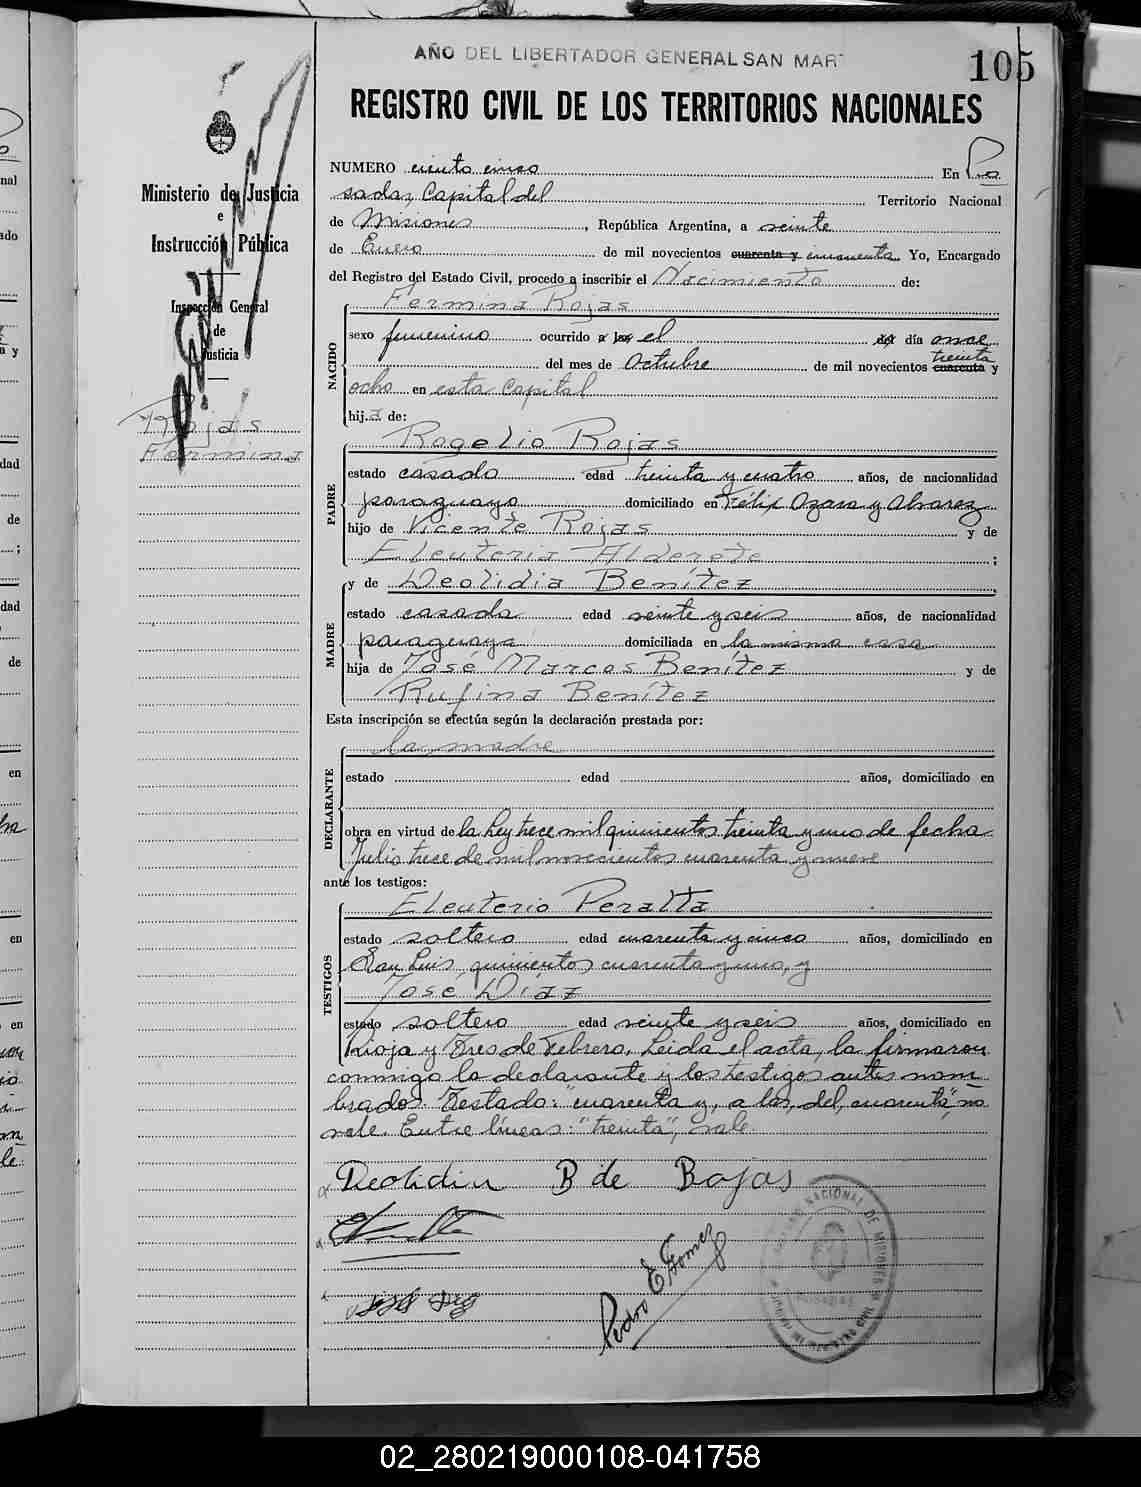 AÑO DEL LIBERTADOR GENERAL SAN MAR
105
REGISTRO CIVIL DE LOS TERRITORIOS NACIONALES
Ministerio de Justicia
e
Instrucción Pública
Inspección General
de
Justicia
Rojas
Fermina
NUMERO ciento cinco En Po
sadas, Capital del Territorio Nacional
de Misiones, República Argentina, a veinte
de Enero de mil novecientos cuarenta y cincuenta Yo, Encargado
del Registro del Estado Civil, procedo a inscribir el Nacimiento de:
NACIDO
Fermina Rojas
sexo femenino ocurrido a las el del día once
del mes de Octubre de mil novecientos cuarenta treinta y
ocho en esta Capital
hija de:
PADRE
Rogelio Rojas
estado casado edad treinta y cuatro años, de nacionalidad
paraguayo domiciliado en Félix Azara y Alvarez
hijo de Vicente Rojas y de
Eleuteria Alderete ;
MADRE
y de Deolidia Benítez
estado casada edad veinte y seis años, de nacionalidad
paraguaya domiciliada en la misma casa
hija de José Marcos Benítez y de
Rufina Benítez
Esta inscripción se efectúa según la declaración prestada por:
DECLARANTE
la madre
estado edad años, domiciliado en
obra en virtud de la Ley trece mil quinientos treinta y uno de fecha
Julio trece de mil novecientos cuarenta y nueve
ante los testigos:
TESTIGOS
Eleuterio Peralta
estado soltero edad cuarenta y cinco años, domiciliado en
San Luis, quinientos cuarenta y uno, y
José Díaz
estado soltero edad veinte y seis años, domiciliado en
Rioja y Tres de Febrero. Leida el acta, la firmaron
conmigo la declarante y los testigos antes nom
brados. Testado: "cuarenta y, a las, del, cuarenta", no
vale. Entre líneas: "treinta", vale.
Deolidia B de Rojas
Pedro E Gomez
NACIONAL DE MISIONES
02_280219000108-041758